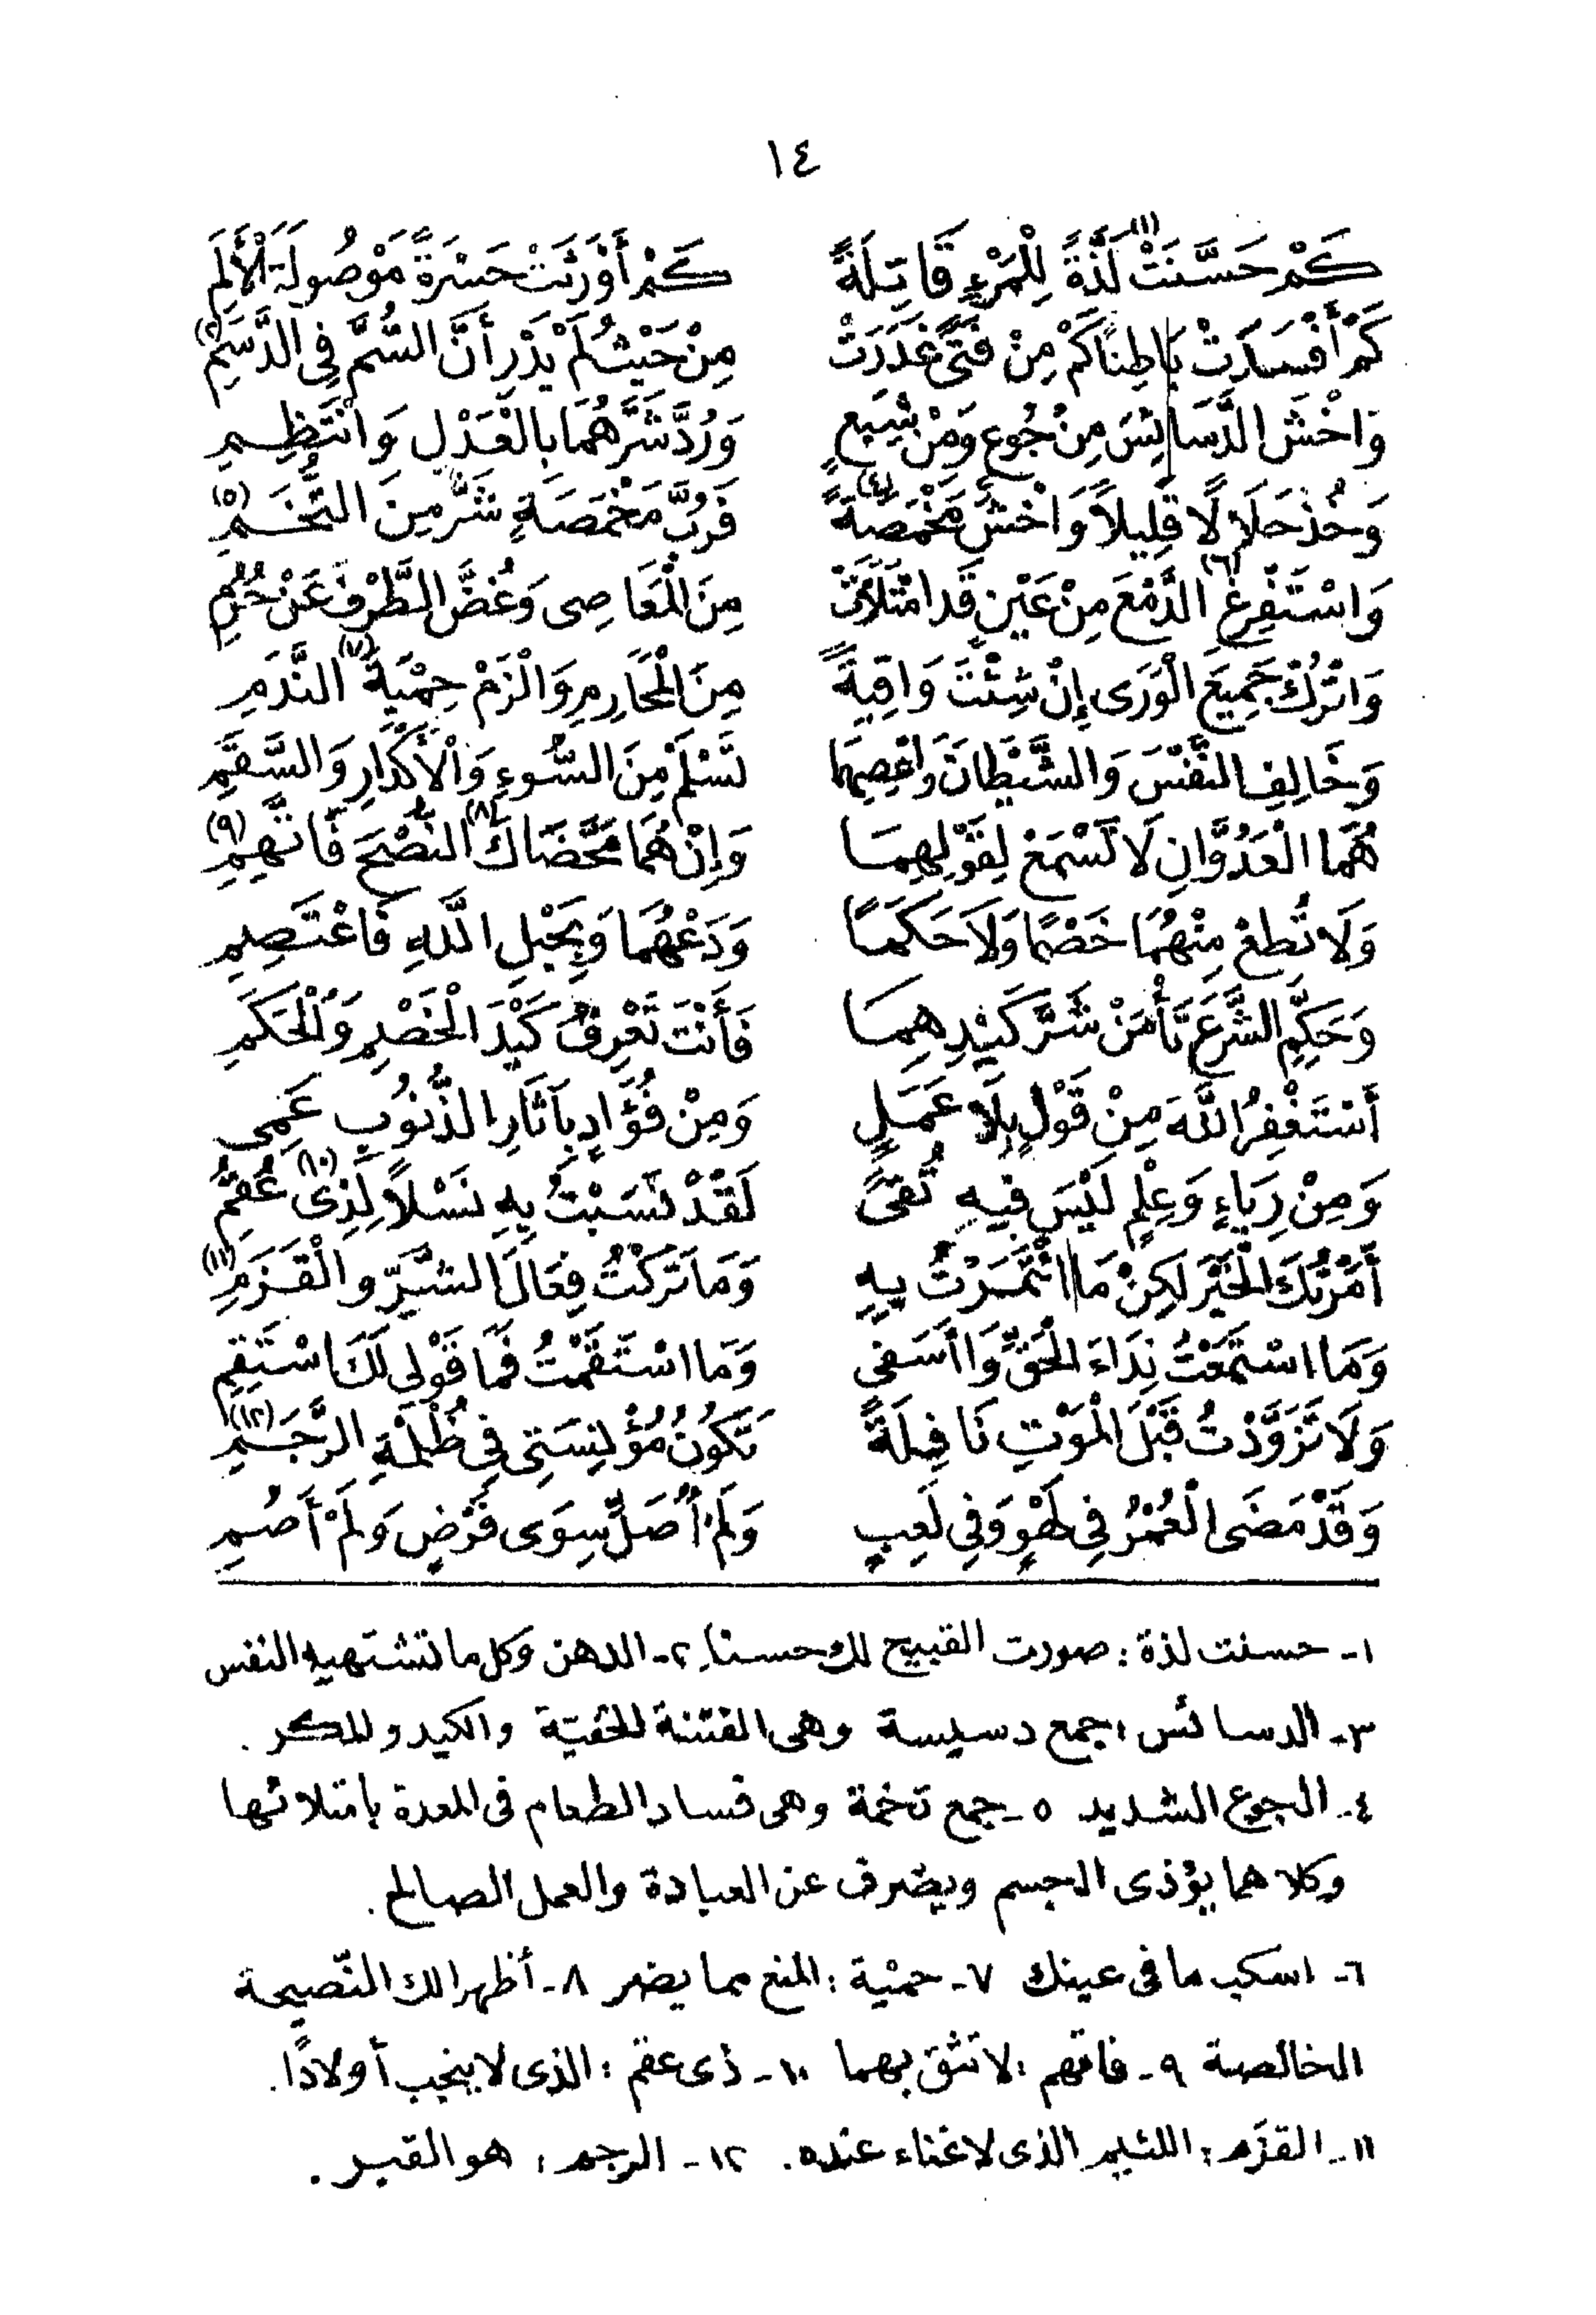 ١٤
كَمْ حَسَّنَتْ(١) لَذَّةً لِلْمَرْءِ قَاتِلَةً كَمْ أَوْرَثَتْ حَسْرَةً مَوْصُولَةَ الْأَلَمِ
كَمْ أَفْسَدَتْ بَاطِنًا كَمْ مِنْ فَتًى غَدَرَتْ مِنْ حَيْثُ لَمْ يَدْرِ أَنَّ السُّمَّ فِى الدَّسَمِ(٢)
وَاخْشَ الدَّسَائِسَ مِنْ جُوعٍ وَمَنْ شِبَعٍ وَرُدَّ شَرَّهُمَا بِالْعَدْلِ وَانْتَظِمِ
وَخُذْ حَلَالًا قَلِيلاً وَاخْشَ مَخْمَصَةً(٤) فَرُبَّ مَخْمَصَةٍ شَرٌّ مِنَ التُّخَمِ(٥)
وَاسْتَفْرِغِ(٦) الدَّمْعَ مِنْ عَيْنٍ قَدِ امْتَلَأَتْ مِنَ الْمَعَاصِى وَغُضَّ الطَّرْفَ عَنْ حُرُمِ
وَاتْرُكْ جَمِيعَ الْوَرَى إِنْ شِئْتَ وَاقِيَةً مِنَ الْمَحَارِمِ وَالْزَمْ حِمْيَةَ(٧) النَّدَمِ
وَخَالِفِ النَّفْسَ وَالشَّيْطَانَ وَاعْصِهِمَا تَسْلَمْ مِنَ السُّوءِ وَالْأَكْدَارِ وَالسَّقَمِ
هُمَا الْعَدُوَّانِ لَا تَسْمَعْ لِقَوْلِهِمَا وَإِنْ هُمَا مَحَّضَاكَ(٨) النُّصْحَ فَاتَّهِمِ(٩)
وَلَا تُطِعْ مِنْهُمَا خَصْمًا وَلَا حَكَمًا وَدَعْهُمَا وَبِحَبْلِ اللَّهِ فَاعْتَصِمِ
وَحَكِّمِ الشَّرْعَ تَأْمَنْ شَرَّ كَيْدِهِمَا فَأَنْتَ تَعْرِفُ كَيْدَ الْخَصْمِ وَالْحَكَمِ
أَسْتَغْفِرُ اللَّهَ مِنْ قَوْلٍ بِلَا عَمَلٍ وَمِنْ فُؤَادٍ بِآثَارِ الذُّنُوبِ عَمِى
وَمِنْ رِيَاءٍ وَعِلْمٍ لَيْسَ فِيهِ تُقًى لَقَدْ نَسَبْتُ بِهِ نَسْلاً لِذِى عُقُمِ(١٠)
أَمَرْتُكَ الْخَيْرَ لَكِنْ مَا ائْتَمَرْتُ بِهِ وَمَا تَرَكْتُ فِعَالَ الشَّرِّ وَالْقَزَمِ(١١)
وَمَا اسْتَمَعْتُ نِدَاءَ الْحَقِّ وَاأَسَفِى وَمَا اسْتَقَمْتُ فَمَا قَوْلِى لَكَ اسْتَقِمِ
وَلَا تَزَوَّدْتُ قَبْلَ الْمَوْتِ نَافِلَةً تَكُونُ مُؤْنِسَتِى فِى ظُلْمَةِ الرَّجَمِ(١٢)
وَقَدْ مَضَى الْعُمْرُ فِى لَهْوٍ وَفِى لَعِبٍ وَلَمْ أُصَلِّ سِوَى فَرْضٍ وَلَمْ أَصُمِ
١- حسنت لذة : صورت القبيح لك حسنا. ٢- الدهن وكل ما تشتهيه النفس
٣- الدسائس : جمع دسيسة وهى الفتنة الخفيّة والكيد والمكر .
٤- الجوع الشديد ٥- جمع تخمة وهى فساد الطعام فى المعدة بامتلائها
وكلاهما يؤذى الجسم ويصرف عن العبادة والعمل الصالح .
٦- اسكب ما فى عينك ٧- حمْية : المنع مما يضر ٨- أظهرا لك النّصيحة
الخالصة ٩- فاتهم : لا تثق بهما ١٠- ذى عقم : الذى لا ينجب أولادًا .
١١- القزَم : اللئيم الذى لا غناء عنده . ١٢- الرجم : هو القبر .